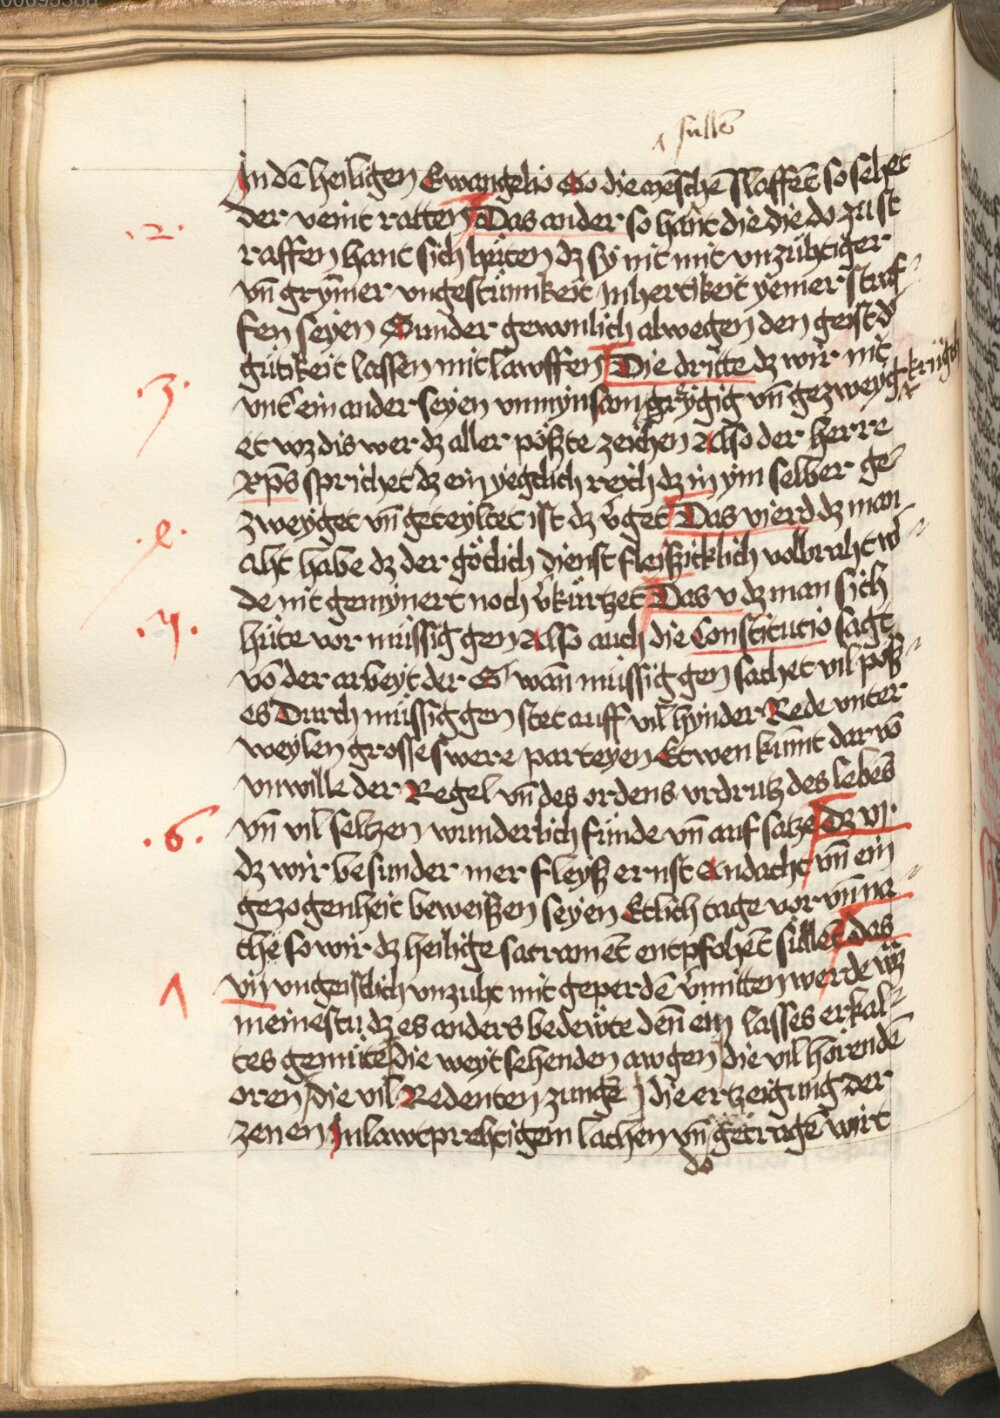 sullē
In dē heiligen Ewangelio So die mēschē slaffēt so sehet
.2.
der veint ratten Das ander so hant die die do zu st
raffen hant sich hüten dz sy nit mit vnzühtiger
vn̄ grȳmer vngestümikeit In hertikeit yemer straf
fen seyen Sunder gewonlich alwegen den geist d'
gütikeit lassen mit lawffen Die dritte dz wir nit
.3.
vnt' ein ander seyen vnmynsam grÿgig vn̄ gezweyg krigch
et wz dis wer dz aller pößte zeichen Also der herre
xp̄s sprichet dz ein yegclich reich dz in ym selber ge
zweyget vn̄ geteyltet ist dz v'get Das vierd dz man
.4.
aht habe dz der götlich dienst fleißicklich volbraht w'
de nit gemynert noch v'kürtzet Das v dz man sich
.5.
hüte vor müssig gen Also auch die Constitucio sagt
vō der arbeyt der S' wan̄ müssig gen sachet vil pöß
es Durch müssig gen stet auff vil hynder Rede vnter
weylen grosse swere parteyen Etwen kumt dar vō
vnwille der Regel vn̄ des ordens vrdrutz des lebēs
.6.
vn̄ vil seltzen wunderlich fünde vn̄ aufsatze Dz vj.
dz wir besunder mer fleyß ernst Andacht vn̄ ein
gezogenheit beweißen seyen Etlich tage vor vn̄ na
che so wir dz heilige sacramēt entpfohēt süllēt das
vij vngeistlich vnzuht mit geperdē v'mitten werde wz
meinestu dz es anders bedewte den̄ ein lasses erkal
tes gemüte die weyt sehenden awgen die vil hörendē
oren die vil Redenten zunge die ertzeigung der
zenen In lawtprehtigem lachen vn̄ getragē wirt
do